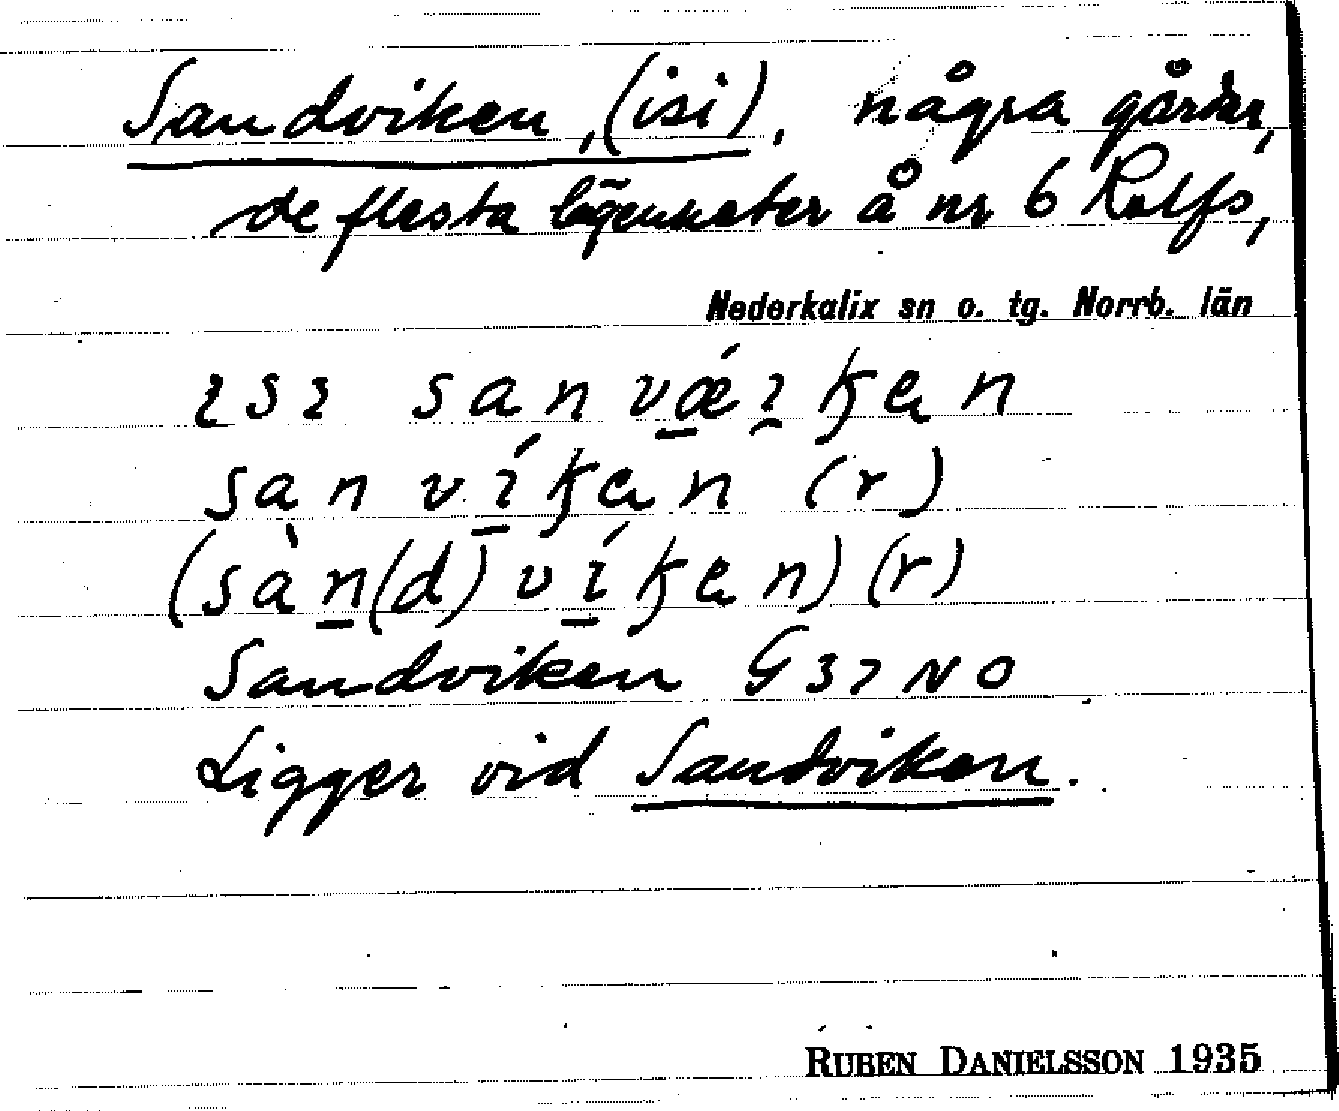 Sandviken, (isi), några gårdar,
de flesta lägenheter å nr 6 Rolfs,
Nederkalix sn o. tg. Norrb. län
ısı sanvǽı̯ꞣen
sanvı́ꞣen (r)
(sàn(d)vı́ꞣen) (r)
Sandviken G 37 NO
Ligger vid Sandviken.
RUBEN DANIELSSON 1935